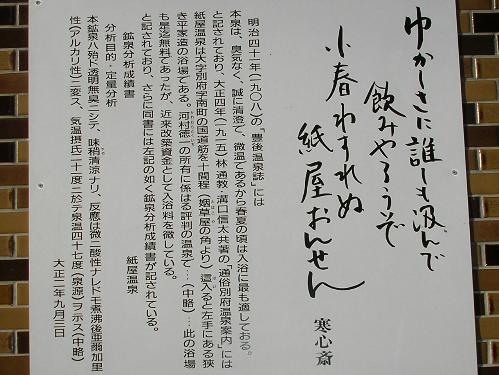 ゆかしさに誰しも汲んで
飲みやろうぞ
小春わすれぬ
紙屋おんせん
寒心斎
明治四十一年(一九〇八)の『豊後温泉誌』には
本泉は、臭気なく、誠に清澄で、微温であるから春夏の頃は入浴に最も適しておる。
と記されており、大正四年(一九一五)林通教・溝口信太共著の、『通俗別府温泉案内』には
紙屋温泉は大字別府字南町の国道筋を十間程(烟草屋の角より)這入ると左手にある狭
き平家造の浴場である。河村徳一の所有に係はる評判の温泉で…(中略)…此の浴場
も是迄無料であつたが、近来改築資金として入浴料を徴している。
と記されており、さらに同書には左記の如く鉱泉分析成績書が記されている。
鉱泉分析成績書
紙屋温泉
分析目的・定量分析
本鉱泉ハ殆ド透明無臭ニシテ、味稍清涼ナリ、反応は微ニ酸性ナレドモ煮沸後亜爾加里
性(アルカリ性)ニ変ス、気温摂氏二十二度ニ於テ泉温四十七度(泉源)ヲ示ス(中略)
大正二年九月三日